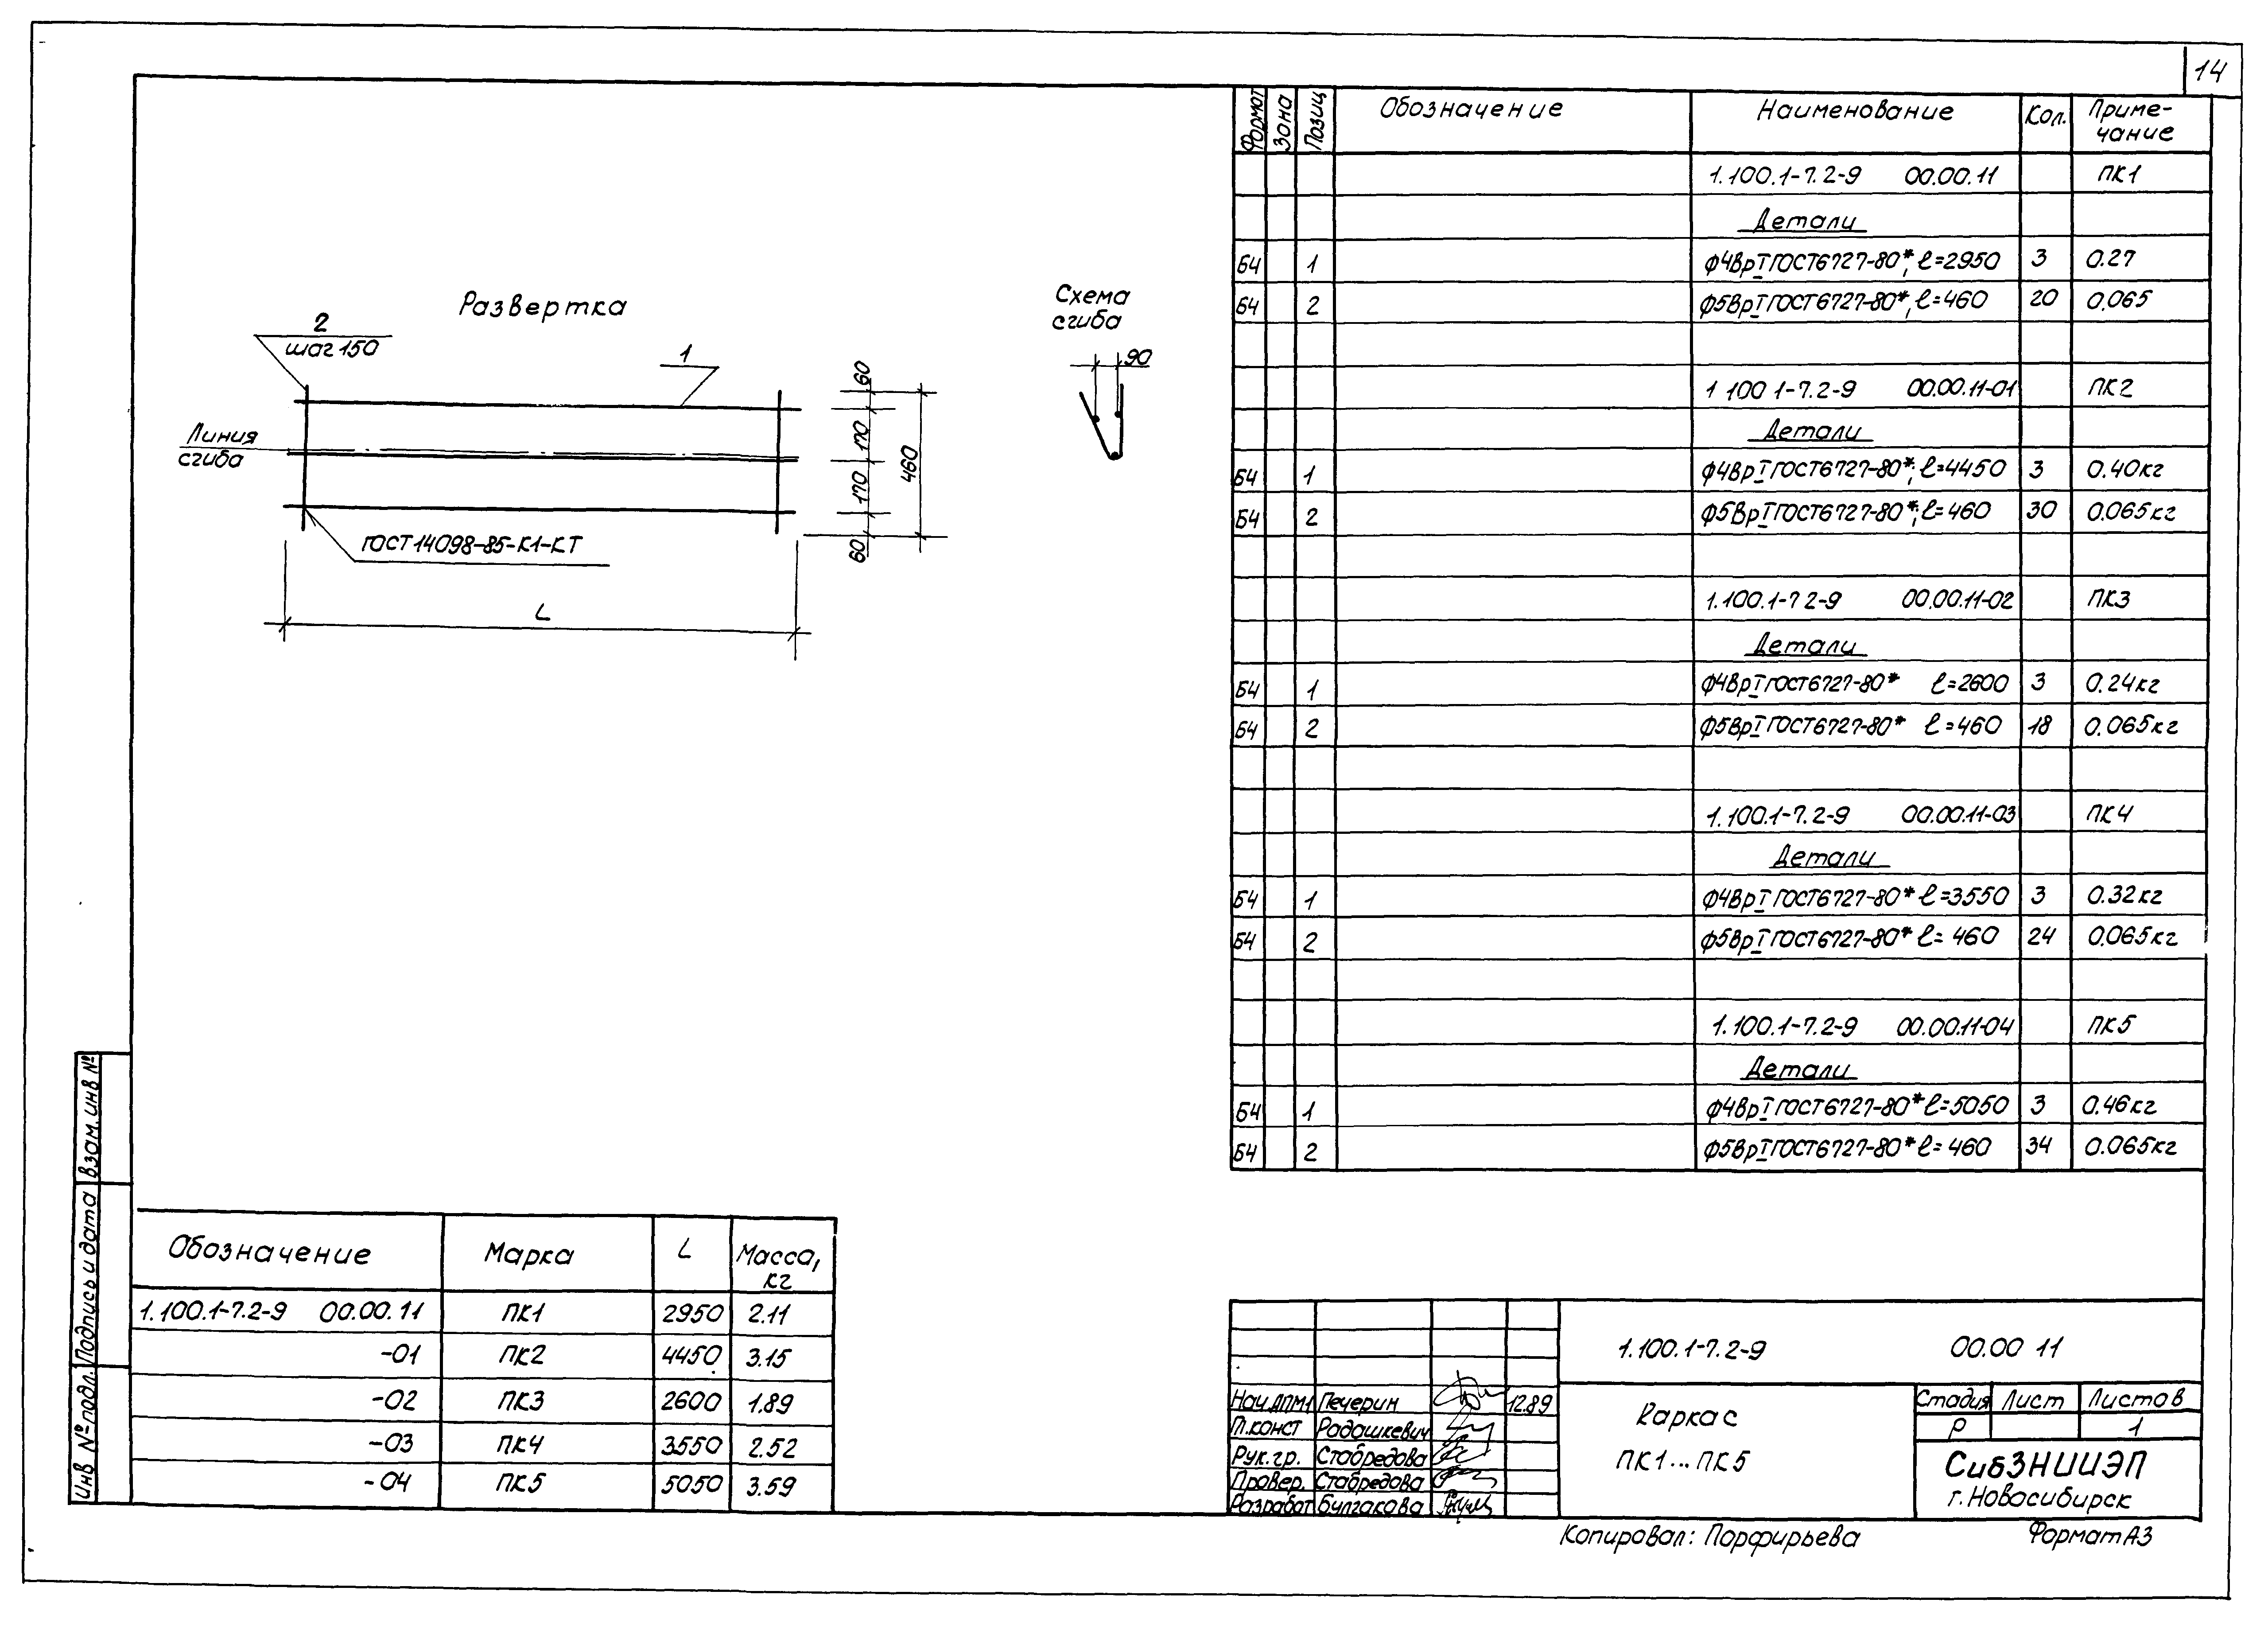 14
Развертка
2
шаг 150
1
Линия
сгиба
ГОСТ 14098-85-К1-КТ
L
60
170
170
60
460
Схема
сгиба
90
Формат Зона Позиц Обозначение Наименование Кол. Приме-
чание
1.100.1-7.2-9 00.00.11 ПК1
Детали
Б4 1 Ф4ВрI ГОСТ6727-80*, ℓ=2950 3 0.27
Б4 2 Ф5ВрI ГОСТ6727-80*, ℓ=460 20 0.065
1 100 1-7.2-9 00.00.11-01 ПК2
Детали
Б4 1 Ф4ВрI ГОСТ6727-80*; ℓ=4450 3 0.40кг
Б4 2 Ф5ВрI ГОСТ6727-80*; ℓ=460 30 0.065кг
1.100.1-7 2-9 00.00.11-02 ПК3
Детали
Б4 1 Ф4ВрI ГОСТ6727-80* ℓ=2600 3 0.24кг
Б4 2 Ф5ВрI ГОСТ6727-80* ℓ=460 18 0.065кг
1.100.1-7.2-9 00.00.11-03 ПК4
Детали
Б4 1 Ф4ВрI ГОСТ6727-80* ℓ=3550 3 0.32кг
Б4 2 Ф5ВрI ГОСТ6727-80* ℓ=460 24 0.065кг
1.100.1-7.2-9 00.00.11-04 ПК5
Детали
Б4 1 Ф4ВрI ГОСТ6727-80* ℓ=5050 3 0.46кг
Б4 2 Ф5ВрI ГОСТ6727-80* ℓ=460 34 0.065кг
Обозначение Марка L Масса,
кг
1.100.1-7.2-9 00.00.11 ПК1 2950 2.11
-01 ПК2 4450 3.15
-02 ПК3 2600 1.89
-03 ПК4 3550 2.52
-04 ПК5 5050 3.59
Инв № подл. Подпись и дата Взам. инв №
1.100.1-7.2-9 00.00 11
Нач.АПМ1 Печерин 12.89
Гл.конст Радашкевич
Рук.гр. Стабредова
Провер. Стабредова
Разработ Булгакова
Каркас
ПК1...ПК5
Стадия Лист Листов
Р 1
СибЗНИИЭП
г.Новосибирск
Копировал: Порфирьева Формат А3